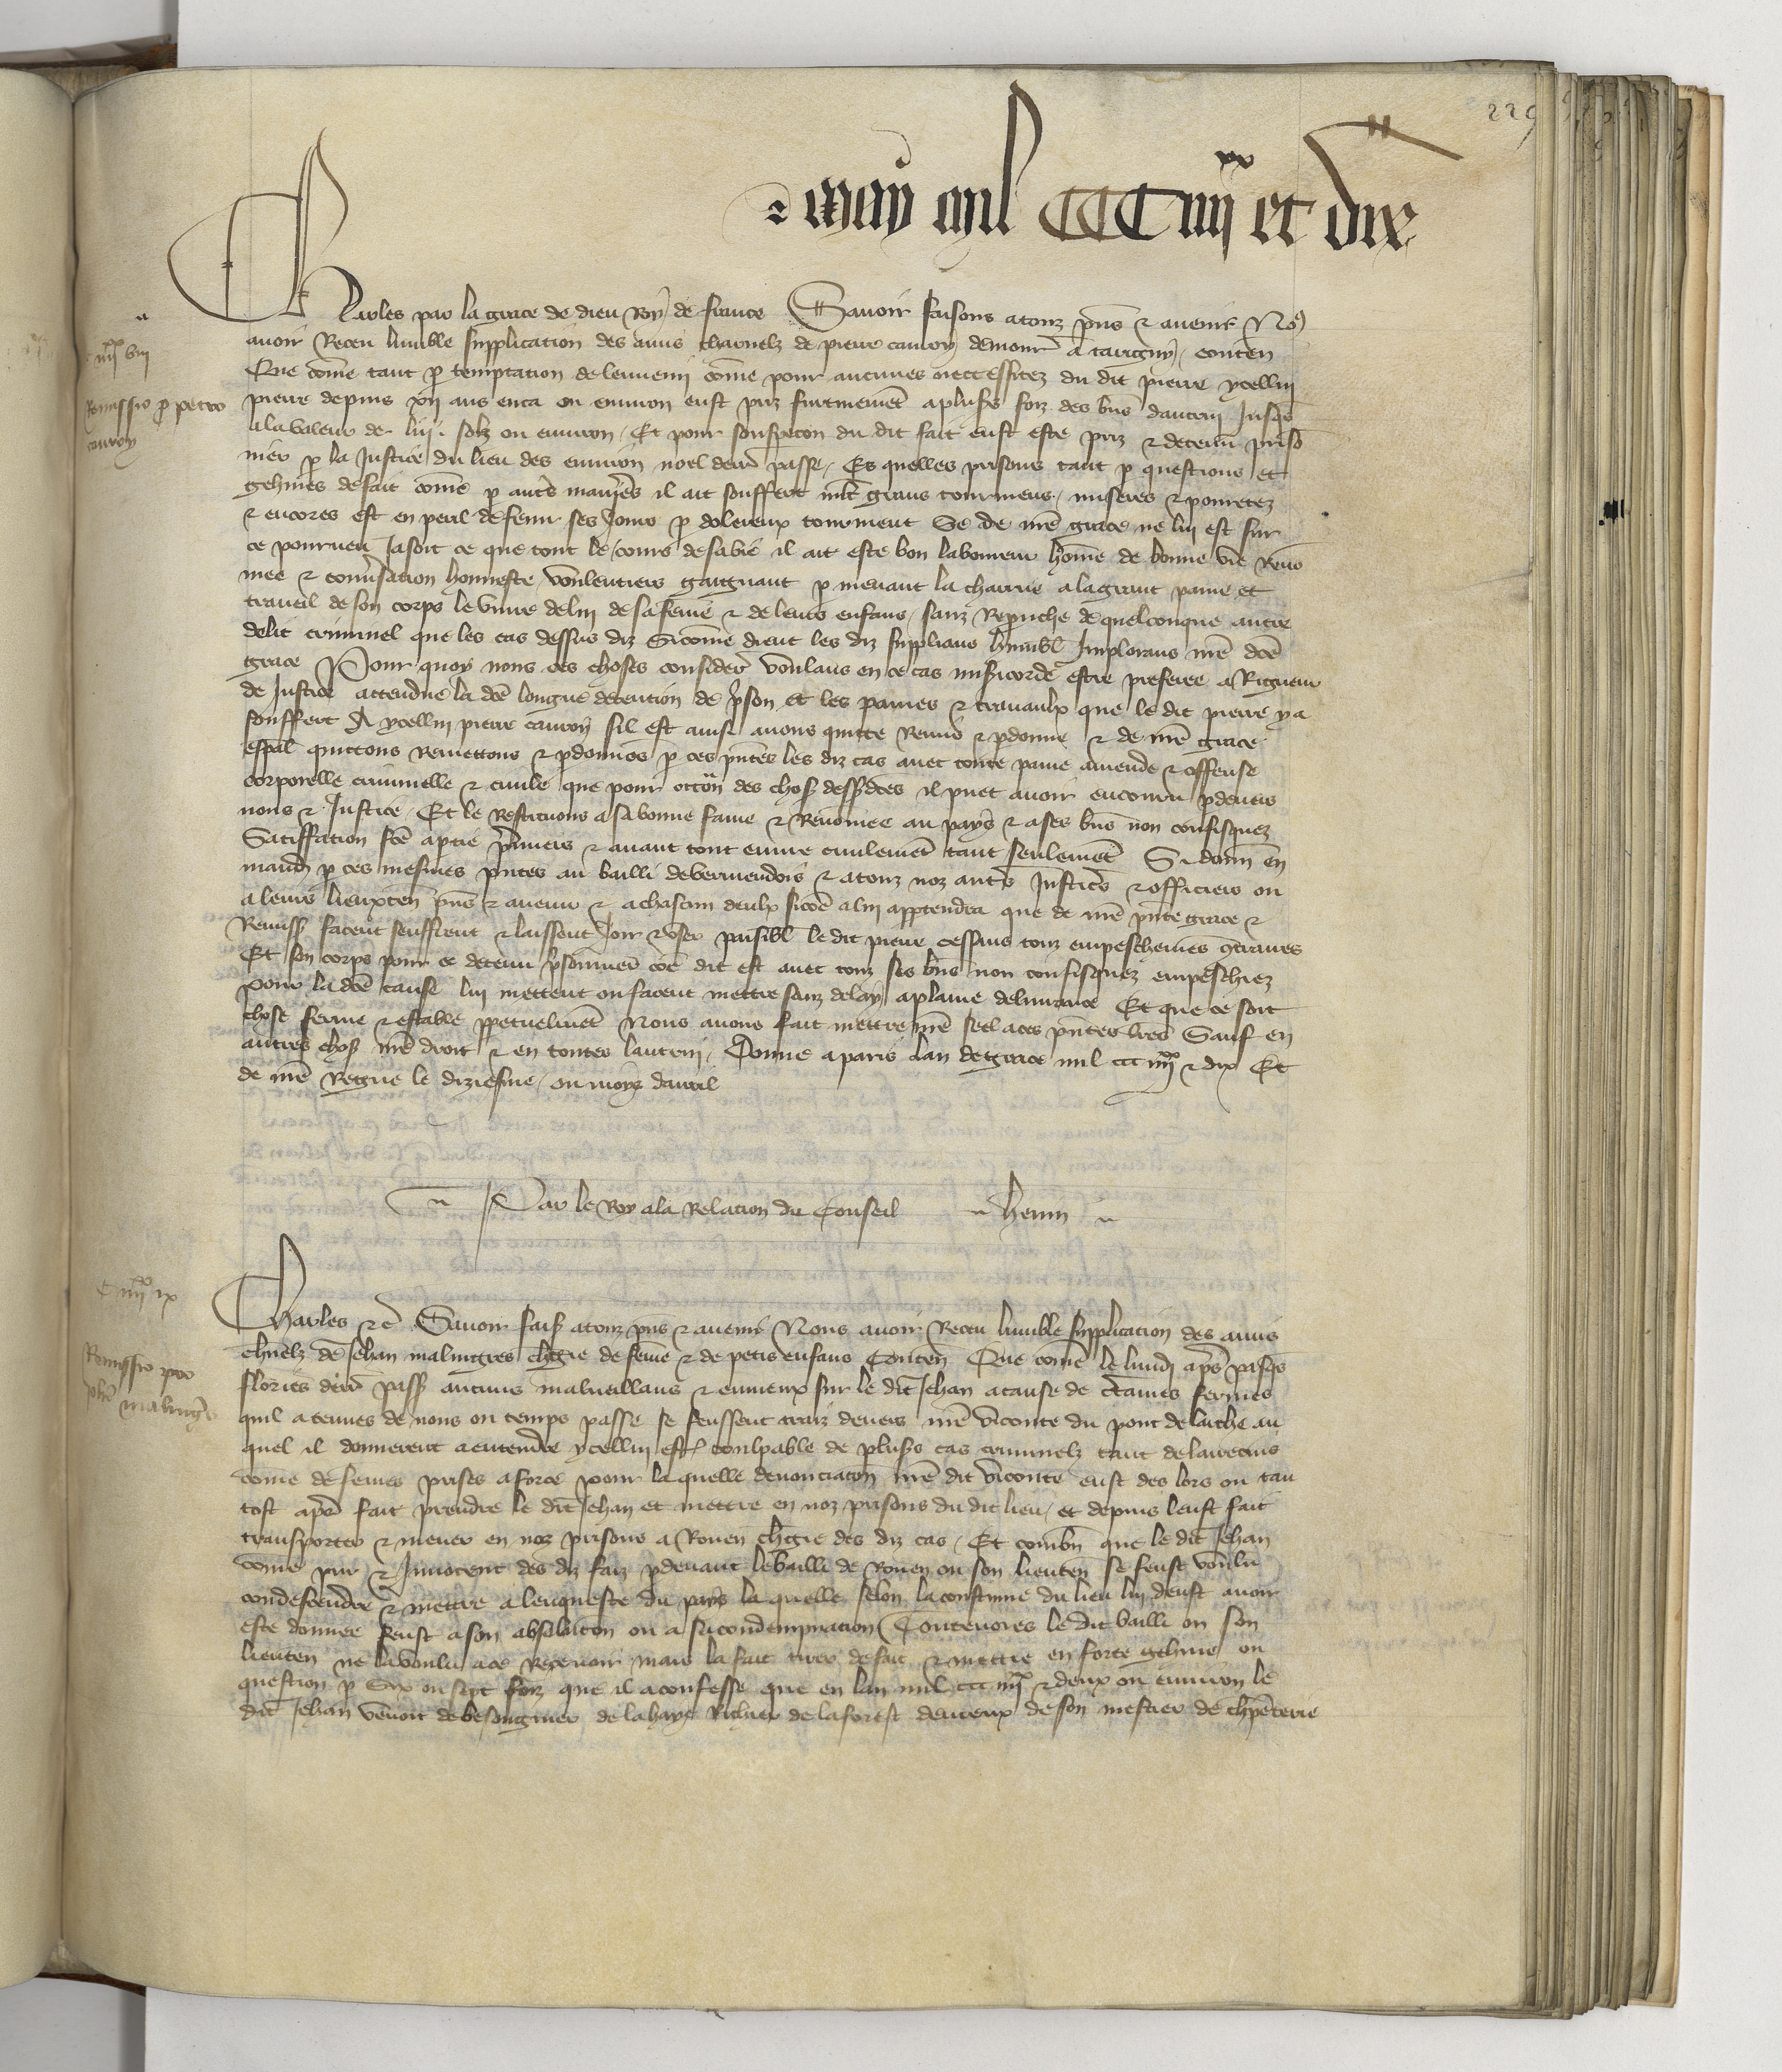 229
may mil CCC iiijxx et dix
Charles par la grace de dieu Roy de france Savoir faisons a touz pns et avenir No9
iiijxx viij
avoir Receu lumble supplication des amis charnelz de pierre cauroy demour a conten
Que come tant p temptation de lennemi come pour aucunes neccessitez du dit pierre ycellui
Remissio p petro
cauroy
pierre depuis xij ans enca ou environ eust priz furtivement a plus foiz des bns dautrui Jusqs
a la valeur de liij solz ou environ Et pour souspecon du dit fait eust este priz et detenu priso
nier p la Justice du lieu des environ noel derr passe Es quelles prisons tant p questions et
gehines de fait come p autes manieres il ait souffert mlt grans tourmens miseres et povretez
et encores est en peril de fenir ses Jours p dolereux tourment Se de nre grace ne lui est sur
ce pourveu Ja soit ce que tout le cours de sa vie il ait este bon laboureur home de bonne vie Reno
mee et conversation honneste voulentiers gaignant p menant la charrue a la grant paine et
travail de son corps le vivre de lui de sa feme et de leurs enfans sanz Reprouche de quelconque autre
delit criminel que les cas dessus diz Sicome dient les diz supplians humbl Implorans nre dce
grace Pour quoy nous ces choses consider voulans en ce cas misicorde estre preferee a Rigueur
de Justice attendue la dce longue detention de pson et les paines et travaulx que le dit pierre y a
souffert A ycellui pierre cauroy sil est ainsi avons quitte Remis et pdonne et de nre grace
espal quittons Remettons et pdonnos p ces pntes les diz cas avec toute paine amende et offense
corporelle criminelle et civile que pour occon des chos dessdces il puet avoir encouru pdevers
nous et Justice Et le Restituons a sa bonne fame et Renomee au pays et a ses bns non confisquez
Satiffation fce a ptie pmiers et avant tout euvre civilement tant seulement Si donn en
mand p ces mesmes pntes au bailli de vermendois et a touz noz autes Justices et officiers ou
a leurs lieuxten pns et avenir et a chascun deulx sicoe a lui apptendra que de nre pnte grace et
Remiss facent seuffrent et laissent Joir et user paisibl le dit pierre cessans touz empeschemens 9traires
Et son corps pour ce detenu psonnier coe dit est avec touz ses bns non confisquez empeschiez
pour la dce cause lui mettent ou facent mettre sanz delay a plaine delivrance Et que ce soit
chose ferme et estable ppetuelment Nous avons fait mettre nre seel a ces pntes lres Sauf en
autres chos nre droit et en toutes lautrui Donne a paris lan de grace mil ccc iiijxx et dix Et
de nre Regne le diziesme ou moys davril
Par le Roy a la Relacion du Conseil
henin
C iiijxx ix
Charles etc Savoir fais a touz pns et avenir Nous avoir Receu lumble supplication des amis
Remissio pro
Joh malingres
chnelz de Jehan malingres chgie de feme et de petis enfans Conten Que come le lundi aps pasqs
flories derr pass aucuns malveillans et envieux sur le dit Jehan a cause de ctaines fermes
quil a tenues de nous ou temps passe se feussent traiz devers nre viconte du pont de larche au
quel il donnerent a entendre ycellui est coulpable de plus cas criminelz tant de larrecins
come de femes prises a force pour la quelle denonciacon nre dit viconte eust des lors ou tan
tost apres fait prendre le dit Jehan et mettre en noz prisons du dit lieu et depuis leust fait
transporter et mener en noz prisons a Rouen chgie des diz cas Et combn que le dit Jehan
come pur et Innocent des diz faiz pdevant le bailli de Rouen ou son lieuten se feust voulu
condescendre et mettre a lenqueste du pays la quelle selon la coustume du lieu lui deust avoir
este donnee feust a son absolucon ou a sa condempnation Toutevoies le dit bailli ou son
lieuten ne la voulu a ce Recevoir mais la fait tirer de fait et mettre en forte gehine ou
question p Six ou sept foiz que il a confesse que en lan mil ccc iiijxx et deux ou environ le
dit Jehan venoit de besongnier de la haye Richier de la forest devreux de son mestier de chpeterie